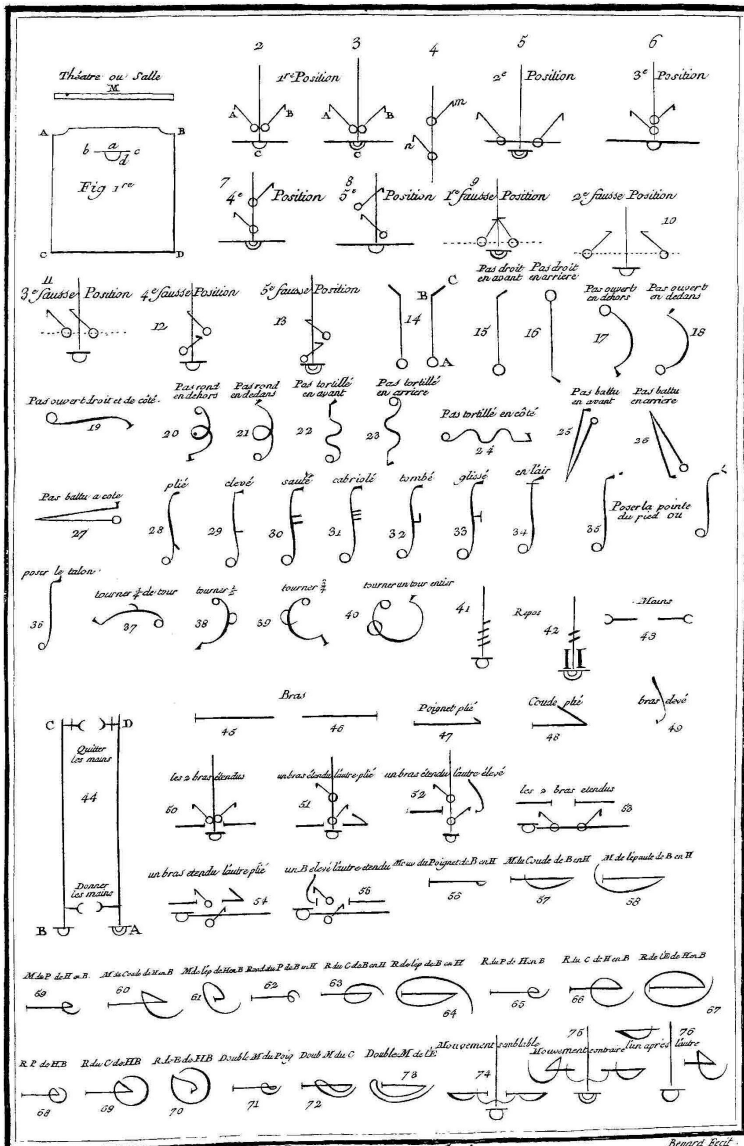 2 3 4 5 6
Théatre ou Salle
M
1re Position 2e Position 3e Position
A B A B m n
C C
A B
b a c
d
Fig 1re
C D
7 8 9
4e Position 5e Position 1re fausse Position 2e fausse Position
10
11
3e fausse Position 4e fausse Position 5e fausse Position
12 13
B C
14
A
Pas droit en avant
15
Pas droit en arriere
16
Pas ouvert en dehors
17
Pas ouvert en dedans
18
Pas ouvert droit et de côté.
19
Pas rond en dehors
20
Pas rond en dedans
21
Pas tortillé en avant
22
Pas tortillé en arriere
23
Pas tortillé en côté
24
Pas battu en avant
25
Pas battu en arriere
26
Pas battu a coté
27
plié
28
elevé
29
sauté
30
cabriolé
31
tombé
32
glissé
33
en l'air
34
35
Poser la pointe
du pied ou
poser le talon.
36
tourner 1/4 de tour
37
tourner 1/2
38
tourner 3/4
39
tourner un tour entier
40
41
Repos
42
Mains
43
C D
Quitter
les mains
44
Donner
les mains
B A
Bras
45 46
Poignet plié
47
Coude plié
48
bras elevé
49
les 2 bras étendus
50
un bras étendu l'autre plié
51
un bras étendu l'autre élevé
52
les 2 bras etendus
53
un bras etendu l'autre plié
54
un B elevé l'autre etendu
Mouv du Poignet de B en H
M du Coude de B en H
57
M de l'épaule de B en H
58
M du P de H en B.
M du Coude de H en B
60
M de l'ép de H en B
61
Rond du P de B en H
62
R du C de B en H
63
R de l'ép de B en H
64
R du P de H en B
65
R du C de H en B
66
R de l'E de H en B
67
R P de H B
68
R du C de H B
69
R de E de H B
70
Double M du Poig
71
Doub M du C
72
Double M de l'E
73
Mouvement semblable
74
75
Mouvement contraire
76
l'un après l'autre
Benard Fecit